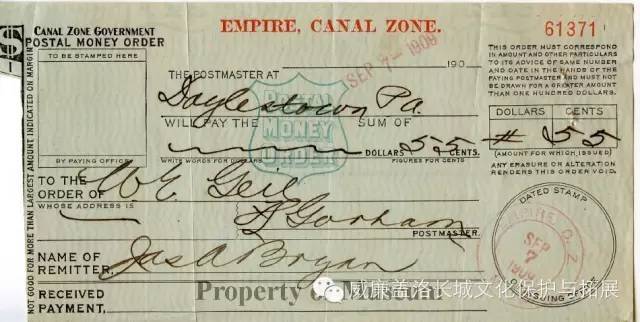 CANAL ZONE GOVERNMENT
POSTAL MONEY ORDER
EMPIRE, CANAL ZONE.
61371
TO BE STAMPED HERE
SEP 7- 1909
190
THIS ORDER MUST CORRESPOND
IN AMOUNT AND OTHER PARTICULARS
TO ITS ADVICE OF SAME NUMBER
AND DATE IN THE HANDS OF THE
PAYING POSTMASTER AND MUST NOT
BE DRAWN FOR A GREATER AMOUNT
THAN ONE HUNDRED DOLLARS.
THE POSTMASTER AT
Doylestown Pa.
POSTAL
MONEY
ORDER
WILL PAY THE SUM OF
DOLLARS 55 CENTS.
WRITE WORDS FOR DOLLARS
FIGURES FOR CENTS.
DOLLARS CENTS
# 55
(AMOUNT FOR WHICH ISSUED)
ANY ERASURE OR ALTERATION
RENDERS THIS ORDER VOID.
BY PAYING OFFICE
TO THE
ORDER OF W E Geil
WHOSE ADDRESS IS
Gorham
POSTMASTER.
DATED STAMP
EMPIRE C. Z.
SEP
7
1909
ISSUING OFFICE
NAME OF
REMITTER. Jas A Bryan
RECEIVED
PAYMENT,
NOT GOOD FOR MORE THAN LARGEST AMOUNT INDICATED ON MARGIN
Property of
威廉盖洛长城文化保护与拓展